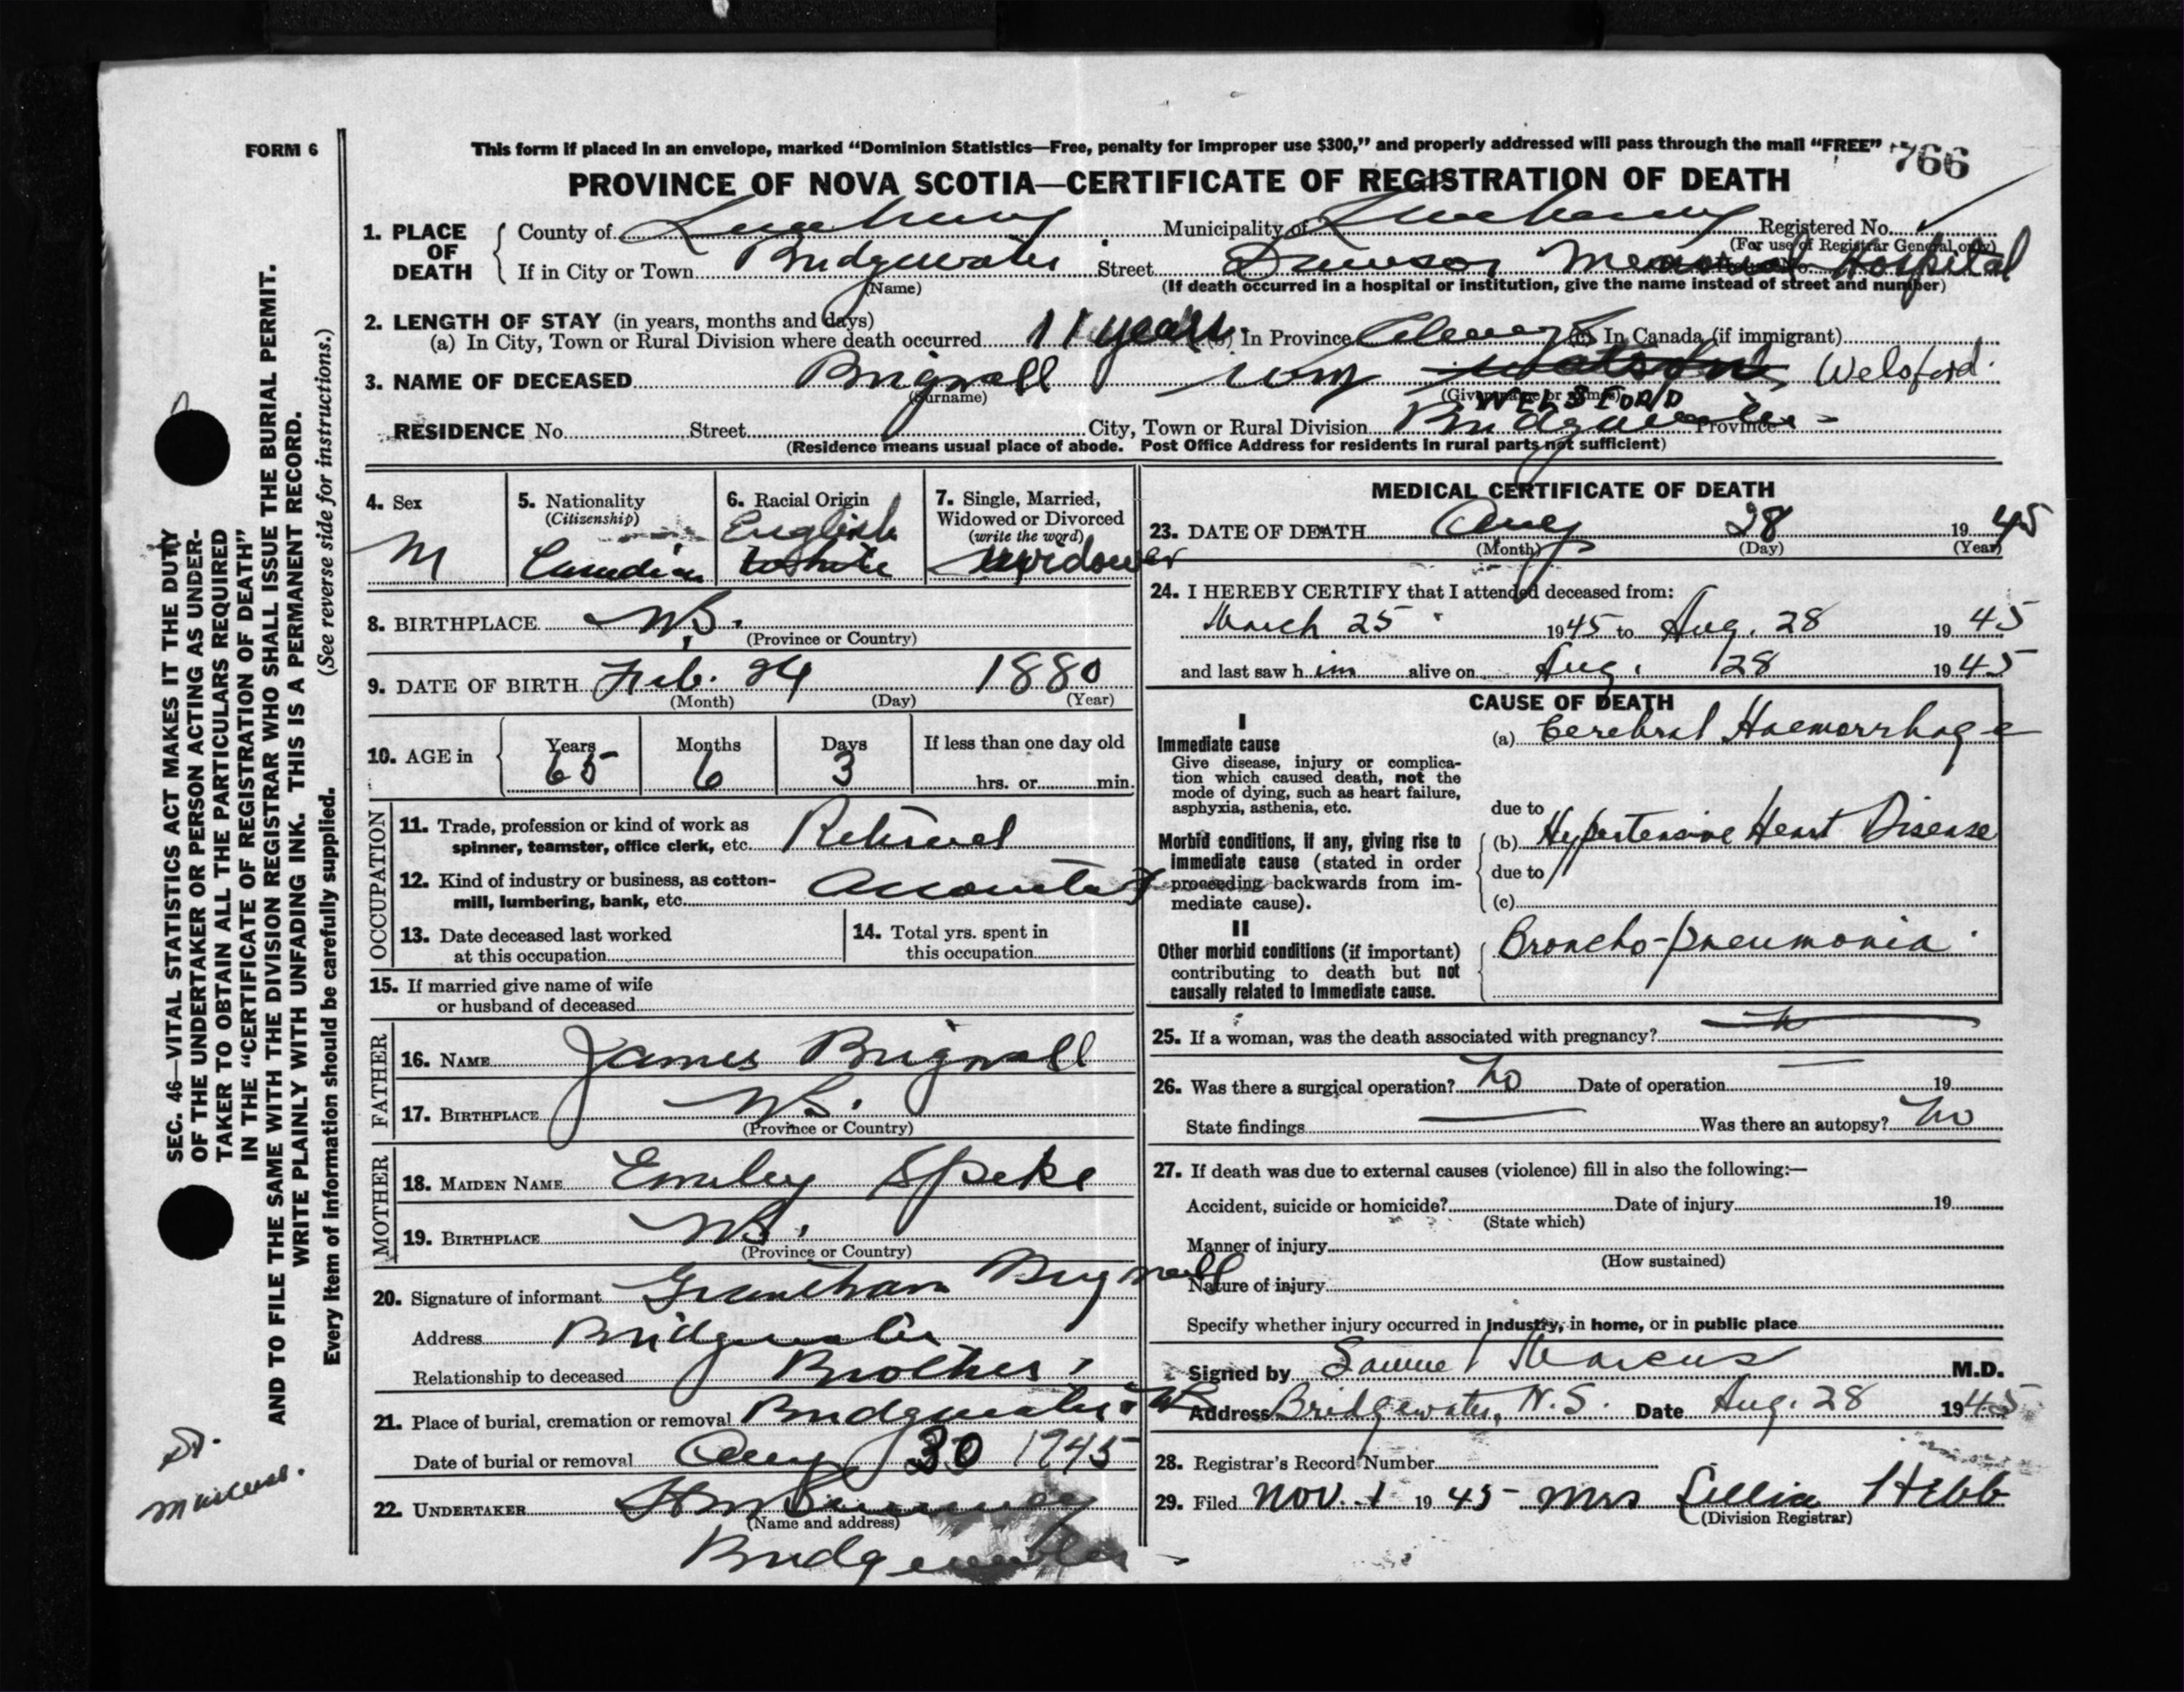 FORM 6
This form if placed in an envelope, marked “Dominion Statistics—Free, penalty for improper use $300,” and properly addressed will pass through the mail “FREE”
766
PROVINCE OF NOVA SCOTIA—CERTIFICATE OF REGISTRATION OF DEATH
1. PLACE OF DEATH
County of Lunenburg Municipality of Lunenburg Registered No.
(For use of Registrar General only)
If in City or Town Bridgewater Street Dawson Memorial Hospital
(Name) (If death occurred in a hospital or institution, give the name instead of street and number)
2. LENGTH OF STAY (in years, months and days)
(a) In City, Town or Rural Division where death occurred 11 years (b) In Province Always (c) In Canada (if immigrant)
3. NAME OF DECEASED Brignall Wm Watson Welsford
(Surname) (Given name or names)
WELSFORD
RESIDENCE No. Street City, Town or Rural Division Bridgewater Province
(Residence means usual place of abode. Post Office Address for residents in rural parts not sufficient)
4. Sex
M
5. Nationality
(Citizenship)
Canadian
6. Racial Origin
English
White
7. Single, Married,
Widowed or Divorced
(write the word)
Widower
8. BIRTHPLACE N.S.
(Province or Country)
9. DATE OF BIRTH Feb. 24 1880
(Month) (Day) (Year)
10. AGE in
Years Months Days If less than one day old
65 6 3 hrs. or min.
OCCUPATION
11. Trade, profession or kind of work as
spinner, teamster, office clerk, etc. Retired
12. Kind of industry or business, as cotton-
mill, lumbering, bank, etc. Accountant
13. Date deceased last worked
at this occupation
14. Total yrs. spent in
this occupation
15. If married give name of wife
or husband of deceased
FATHER
16. NAME James Brignall
17. BIRTHPLACE N.S.
(Province or Country)
MOTHER
18. MAIDEN NAME Emiley Speke
19. BIRTHPLACE N.S.
(Province or Country)
20. Signature of informant Grantham Brignall
Address Bridgewater
Relationship to deceased Brother
21. Place of burial, cremation or removal Bridgewater NS
Date of burial or removal Aug 30 1945
22. UNDERTAKER
(Name and address)
Bridgewater
MEDICAL CERTIFICATE OF DEATH
23. DATE OF DEATH Aug 28 1945
(Month) (Day) (Year)
24. I HEREBY CERTIFY that I attended deceased from:
March 25 1945 to Aug. 28 1945
and last saw him alive on Aug. 28 1945
CAUSE OF DEATH
I
Immediate cause
Give disease, injury or complica-
tion which caused death, not the
mode of dying, such as heart failure,
asphyxia, asthenia, etc.
(a) Cerebral Haemorrhage
due to
Morbid conditions, if any, giving rise to
immediate cause (stated in order
proceeding backwards from im-
mediate cause).
(b) Hypertensive Heart Disease
due to
(c)
II
Other morbid conditions (if important)
contributing to death but not
causally related to immediate cause.
Broncho-pneumonia
25. If a woman, was the death associated with pregnancy?
26. Was there a surgical operation? No Date of operation 19
State findings Was there an autopsy? No
27. If death was due to external causes (violence) fill in also the following:—
Accident, suicide or homicide? Date of injury 19
(State which)
Manner of injury
(How sustained)
Nature of injury
Specify whether injury occurred in industry, in home, or in public place
Signed by Samuel Marcus M.D.
Address Bridgewater, N.S. Date Aug. 28 1945
28. Registrar's Record Number
29. Filed Nov. 1 1945 Mrs Lillia Hebb
(Division Registrar)
SEC. 46—VITAL STATISTICS ACT MAKES IT THE DUTY
OF THE UNDERTAKER OR PERSON ACTING AS UNDER-
TAKER TO OBTAIN ALL THE PARTICULARS REQUIRED
IN THE “CERTIFICATE OF REGISTRATION OF DEATH”
AND TO FILE THE SAME WITH THE DIVISION REGISTRAR WHO SHALL ISSUE THE BURIAL PERMIT.
WRITE PLAINLY WITH UNFADING INK. THIS IS A PERMANENT RECORD.
Every item of information should be carefully supplied. (See reverse side for instructions.)
Dr.
Marcus.